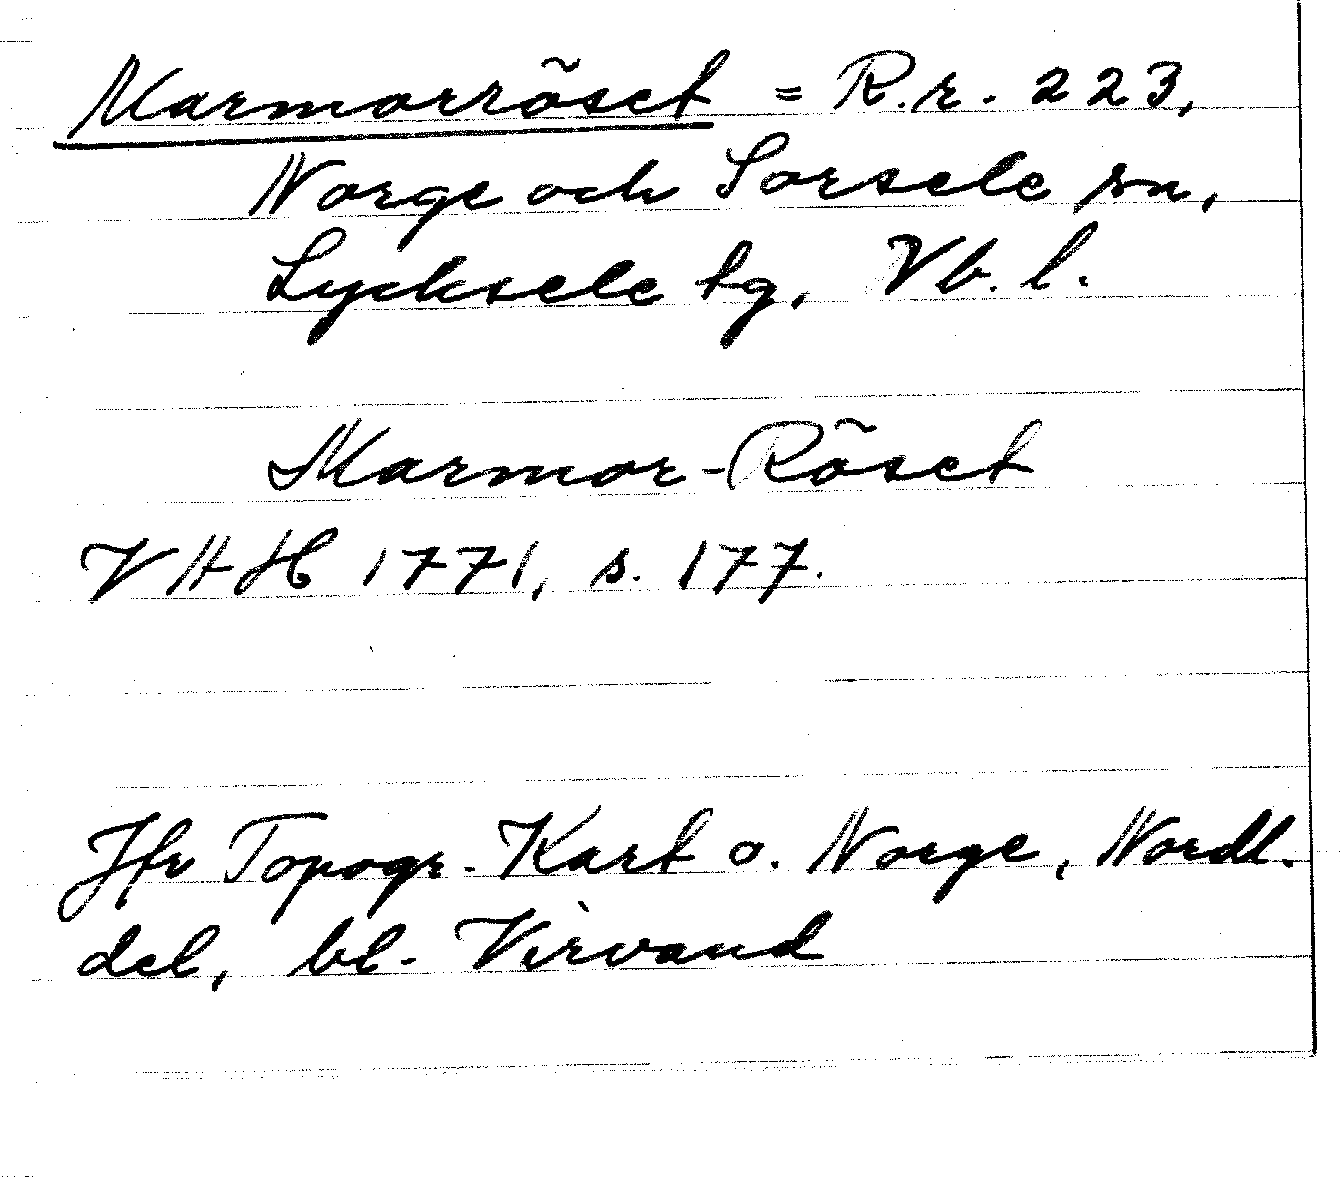 Marmorröset = R.r. 223,
Norge och Sorsele sn,
Lycksele tg, Vb. l.
Marmor-Röset
VHH 1771, s. 177.
Jfr Topogr. Kart o. Norge, Nordl.
del, bl. Virvand